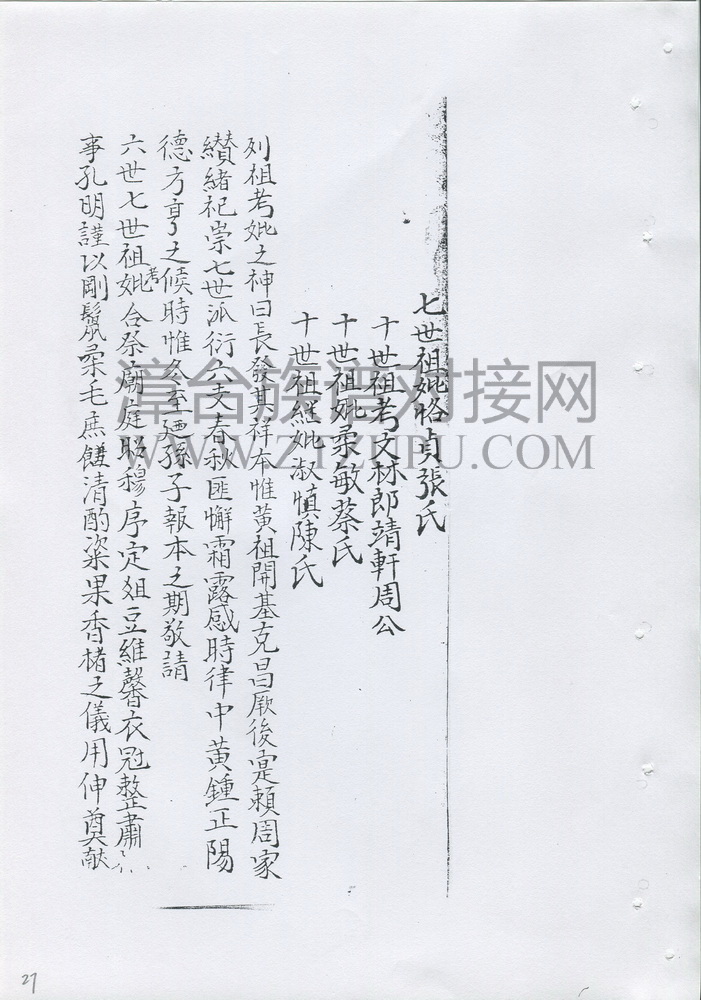 七世祖妣恪貞張氏
十世祖考文林郎靖軒周公
十世祖妣柔敏蔡氏
十世祖継妣淑慎陳氏
列祖考妣之神曰長發其祥本惟黄祖開基克昌厥後寔賴周家
纘緒祀崇七世派衍六支春秋匪懈霜露感時律中黄鍾正陽
德方亨之候時惟冬至廼孫子報本之期敬請
六世七世祖考妣合祭廟庭昭穆序定俎豆維馨衣冠整肅
事孔明謹以剛鬣柔毛庶饈清酌粢果香楮之儀用伸奠献
漳台族谱对接网
WWW.ZTZUPU.COM
27